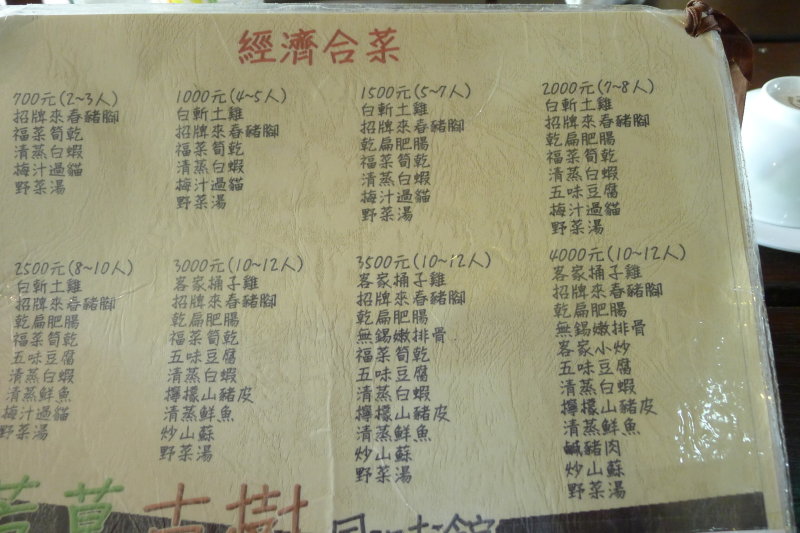 經濟合菜
700元(2~3人)
招牌來春豬腳
福菜筍乾
清蒸白蝦
梅汁過貓
野菜湯
1000元(4~5人)
白斬土雞
招牌來春豬腳
福菜筍乾
清蒸白蝦
梅汁過貓
野菜湯
1500元(5~7人)
白斬土雞
招牌來春豬腳
乾扁肥腸
福菜筍乾
清蒸白蝦
梅汁過貓
野菜湯
2000元(7~8人)
白斬土雞
招牌來春豬腳
乾扁肥腸
福菜筍乾
清蒸白蝦
五味豆腐
梅汁過貓
野菜湯
2500元(8~10人)
白斬土雞
招牌來春豬腳
乾扁肥腸
福菜筍乾
五味豆腐
清蒸白蝦
清蒸鮮魚
梅汁過貓
野菜湯
3000元(10~12人)
客家桶子雞
招牌來春豬腳
乾扁肥腸
福菜筍乾
五味豆腐
清蒸白蝦
檸檬山豬皮
清蒸鮮魚
炒山蘇
野菜湯
3500元(10~12人)
客家桶子雞
招牌來春豬腳
乾扁肥腸
無錫嫩排骨
福菜筍乾
五味豆腐
清蒸白蝦
檸檬山豬皮
清蒸鮮魚
炒山蘇
野菜湯
4000元(10~12人)
客家桶子雞
招牌來春豬腳
乾扁肥腸
無錫嫩排骨
客家小炒
五味豆腐
清蒸白蝦
檸檬山豬皮
清蒸鮮魚
鹹豬肉
炒山蘇
野菜湯